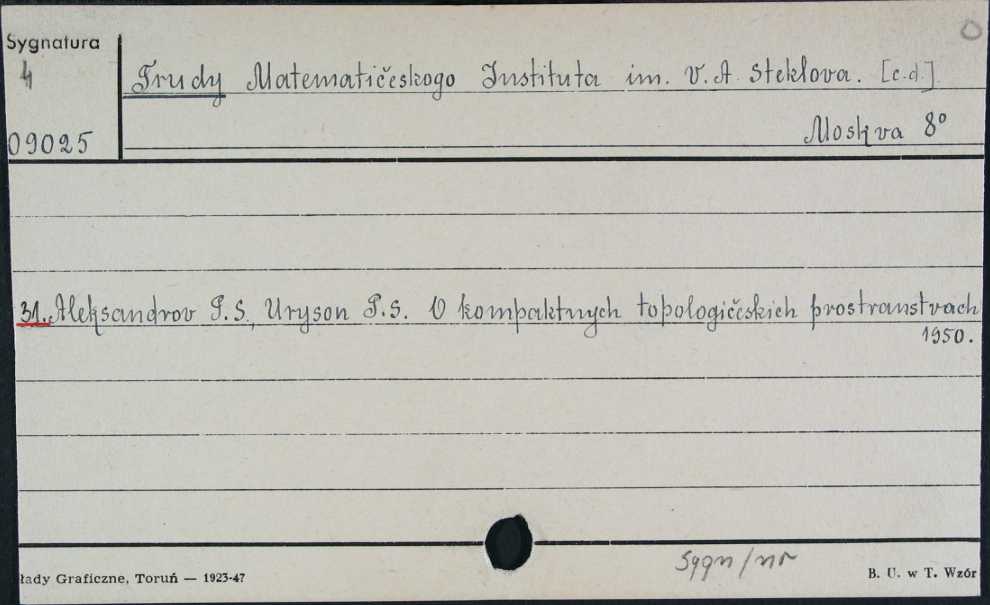 Sygnatura
4
09025
Trudy Matematičeskogo Instituta im. V. A. Steklova. [c.d.]
Moskva 8°
31. Aleksandrov P. S., Uryson P. S. O kompaktnych topologičeskich prostranstvach
1950.
Sygn/nr
łady Graficzne, Toruń — 1923-47
B. U. w T. Wzór